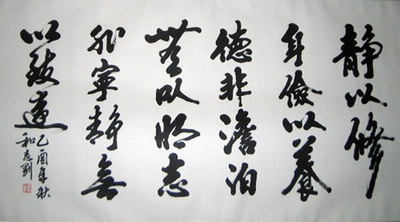 靜以修
身儉以養
德非澹泊
無以明志
非寧靜無
以致遠
乙酉年秋
和志剛